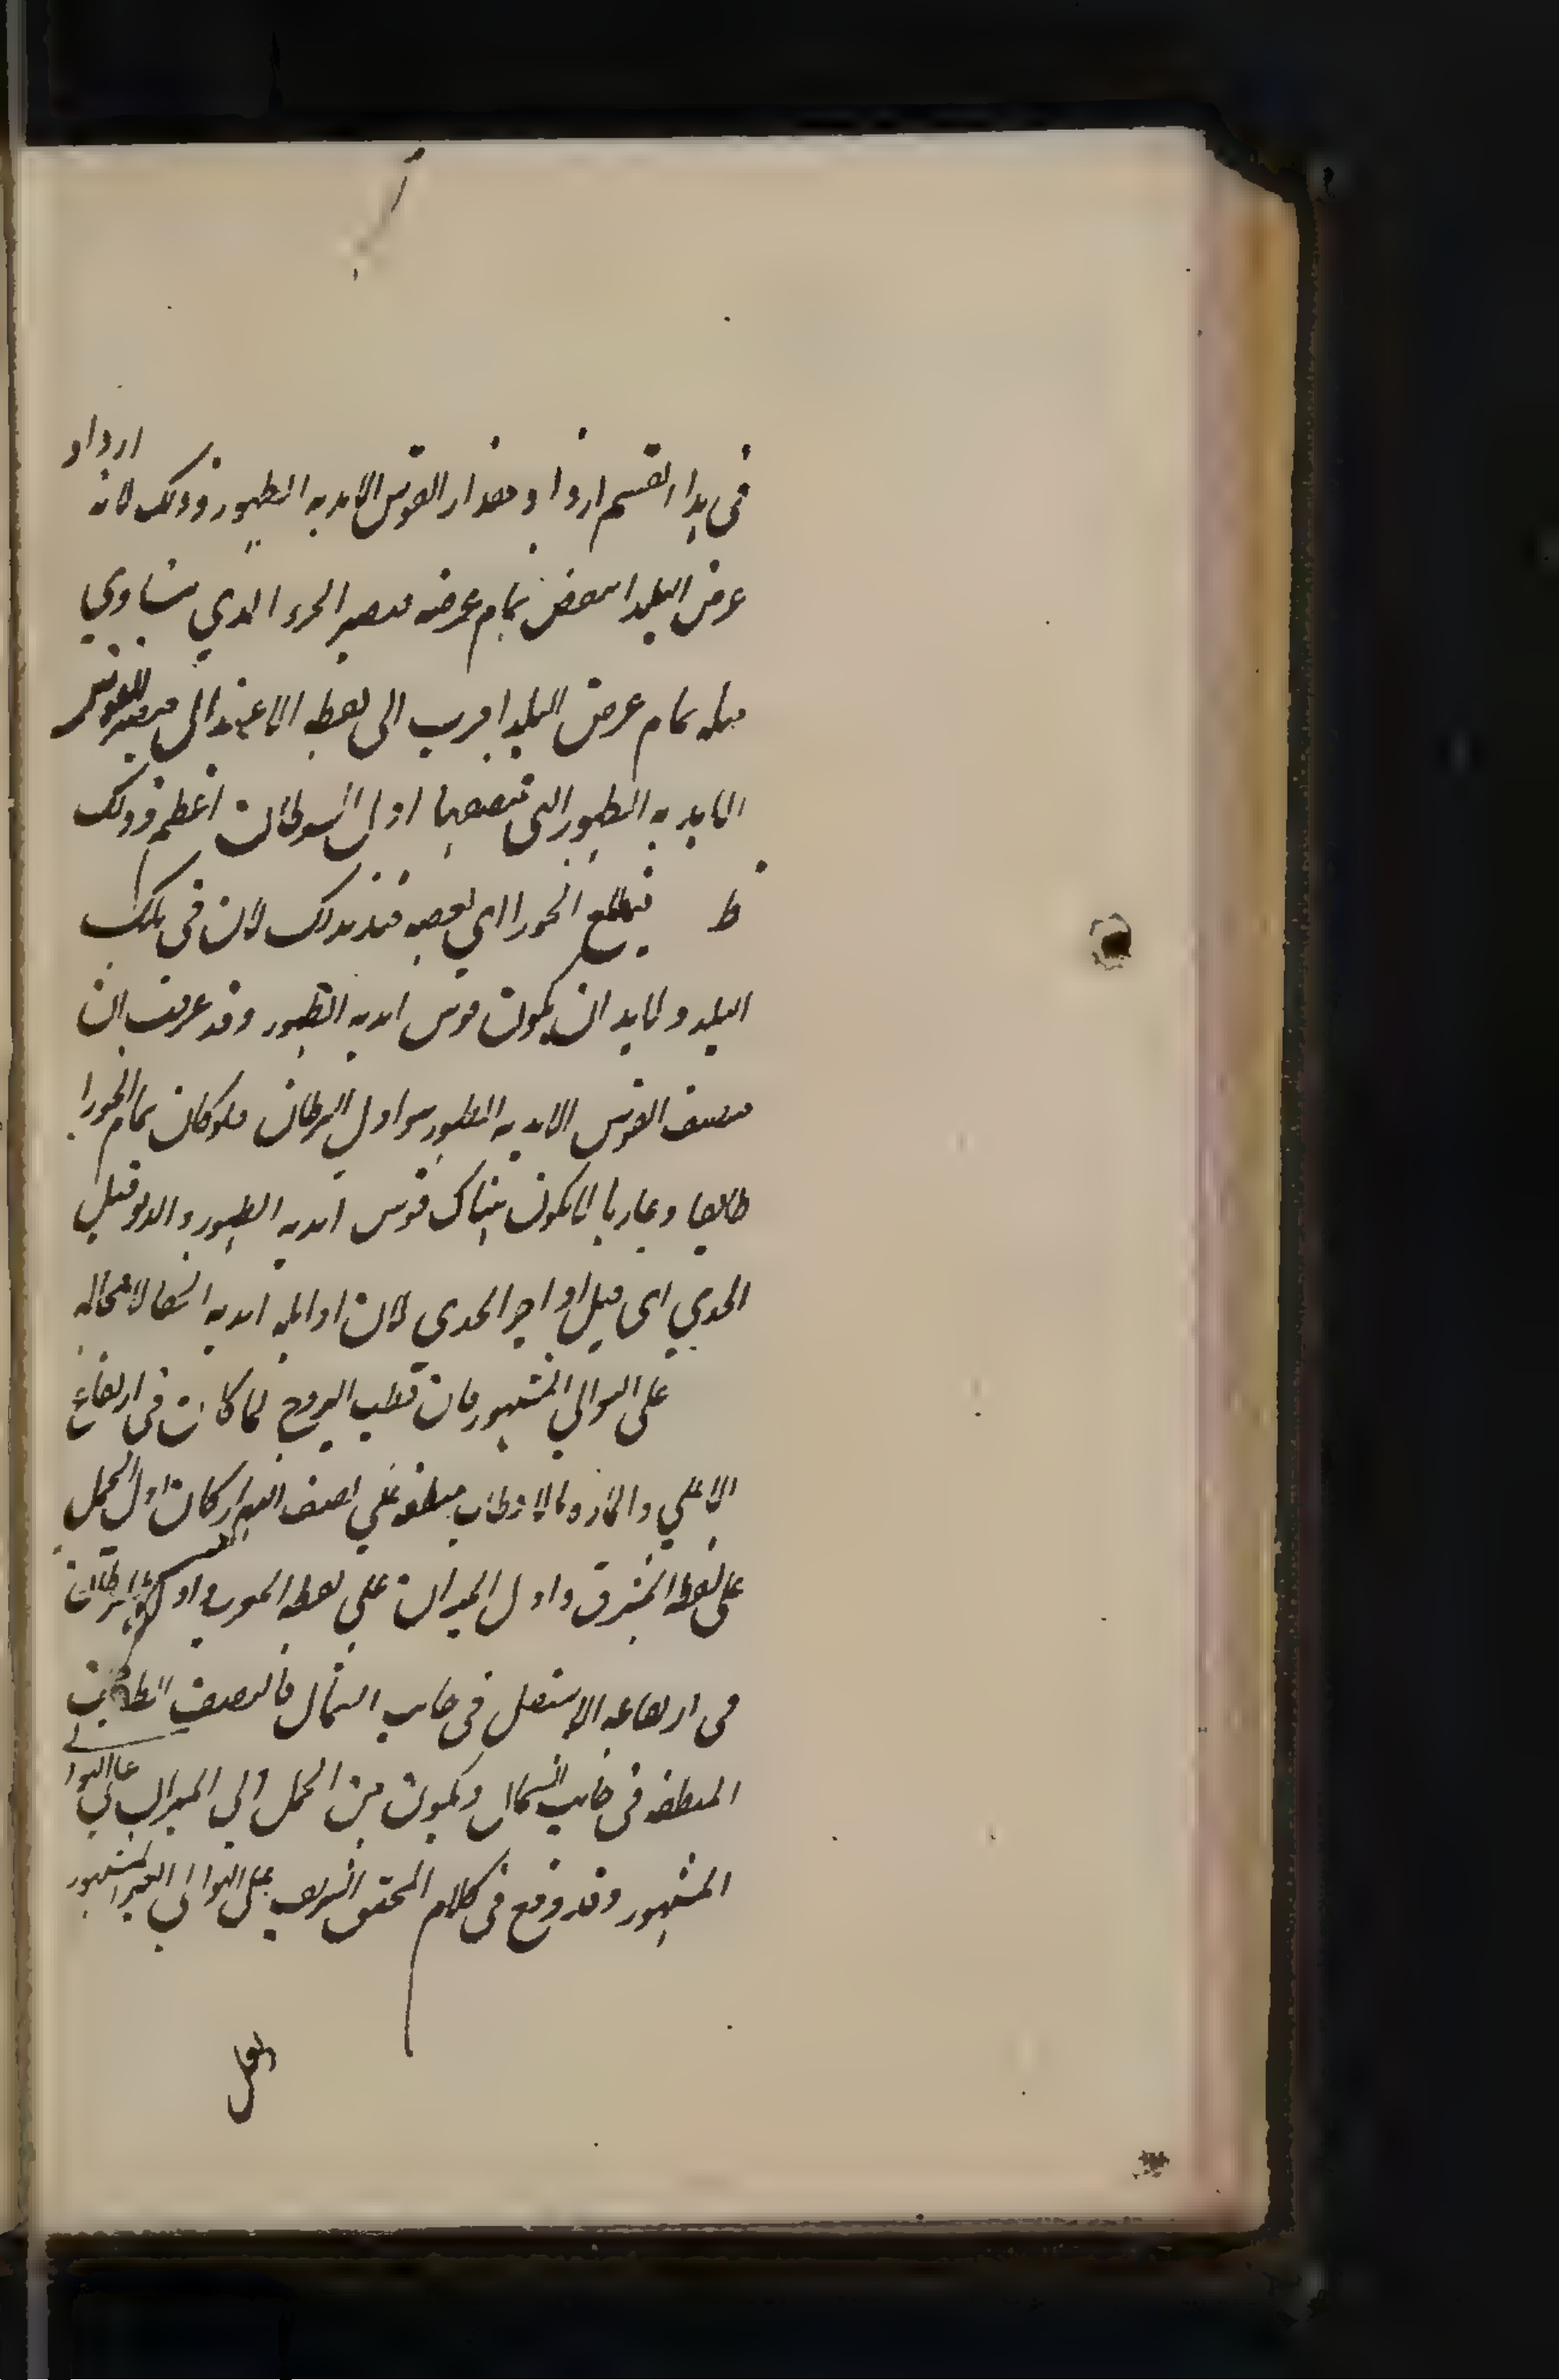 في هذا القسم ازداد مقدار القوس الابدية الظهور وذلك لانه ازداد
عرض البلد انتقض تمام عرضه فيصير الجزء الذي يساوي
ميله تمام عرض البلد اقرب الى نقطة الاعتدال فيصير القوس
الابدية الظهور التي منتصفها اول السرطان اعظم وذلك
ظ فيطلع الجوزا اي بعضه فيد بذلك لان في تلك
البلد ولابد ان يكون قوس ابدية الظهور وقد عرفت ان
منتصف القوس الابدية الظهور هو اول السرطان فلو كان تمام الجوزا
طالعا وغاربا لا يكون هناك قوس ابدية الظهور والدلو قبل
الجدي اي قبل اواخر الجدي لان اوائله ابدية الخفا لا محالة
على التوالي المشهور فان قطب البروج لما كانت في ارتفاع
الاعلي والمارة بالاقطاب منطبقة علي نصف النهار كان اول الحمل
على نقطة المشرق واول الميزان علي نقطة المغرب واول السرطان
في ارتفاعه الاسفل في جانب الشمال فالنصف الظاهر من
المنطقة في جانب الشمال ويكون من الحمل الي الميزان علي التوالي
المشهور وقد وقع في كلام المحقق الشريف على التوالي الغير المشهور